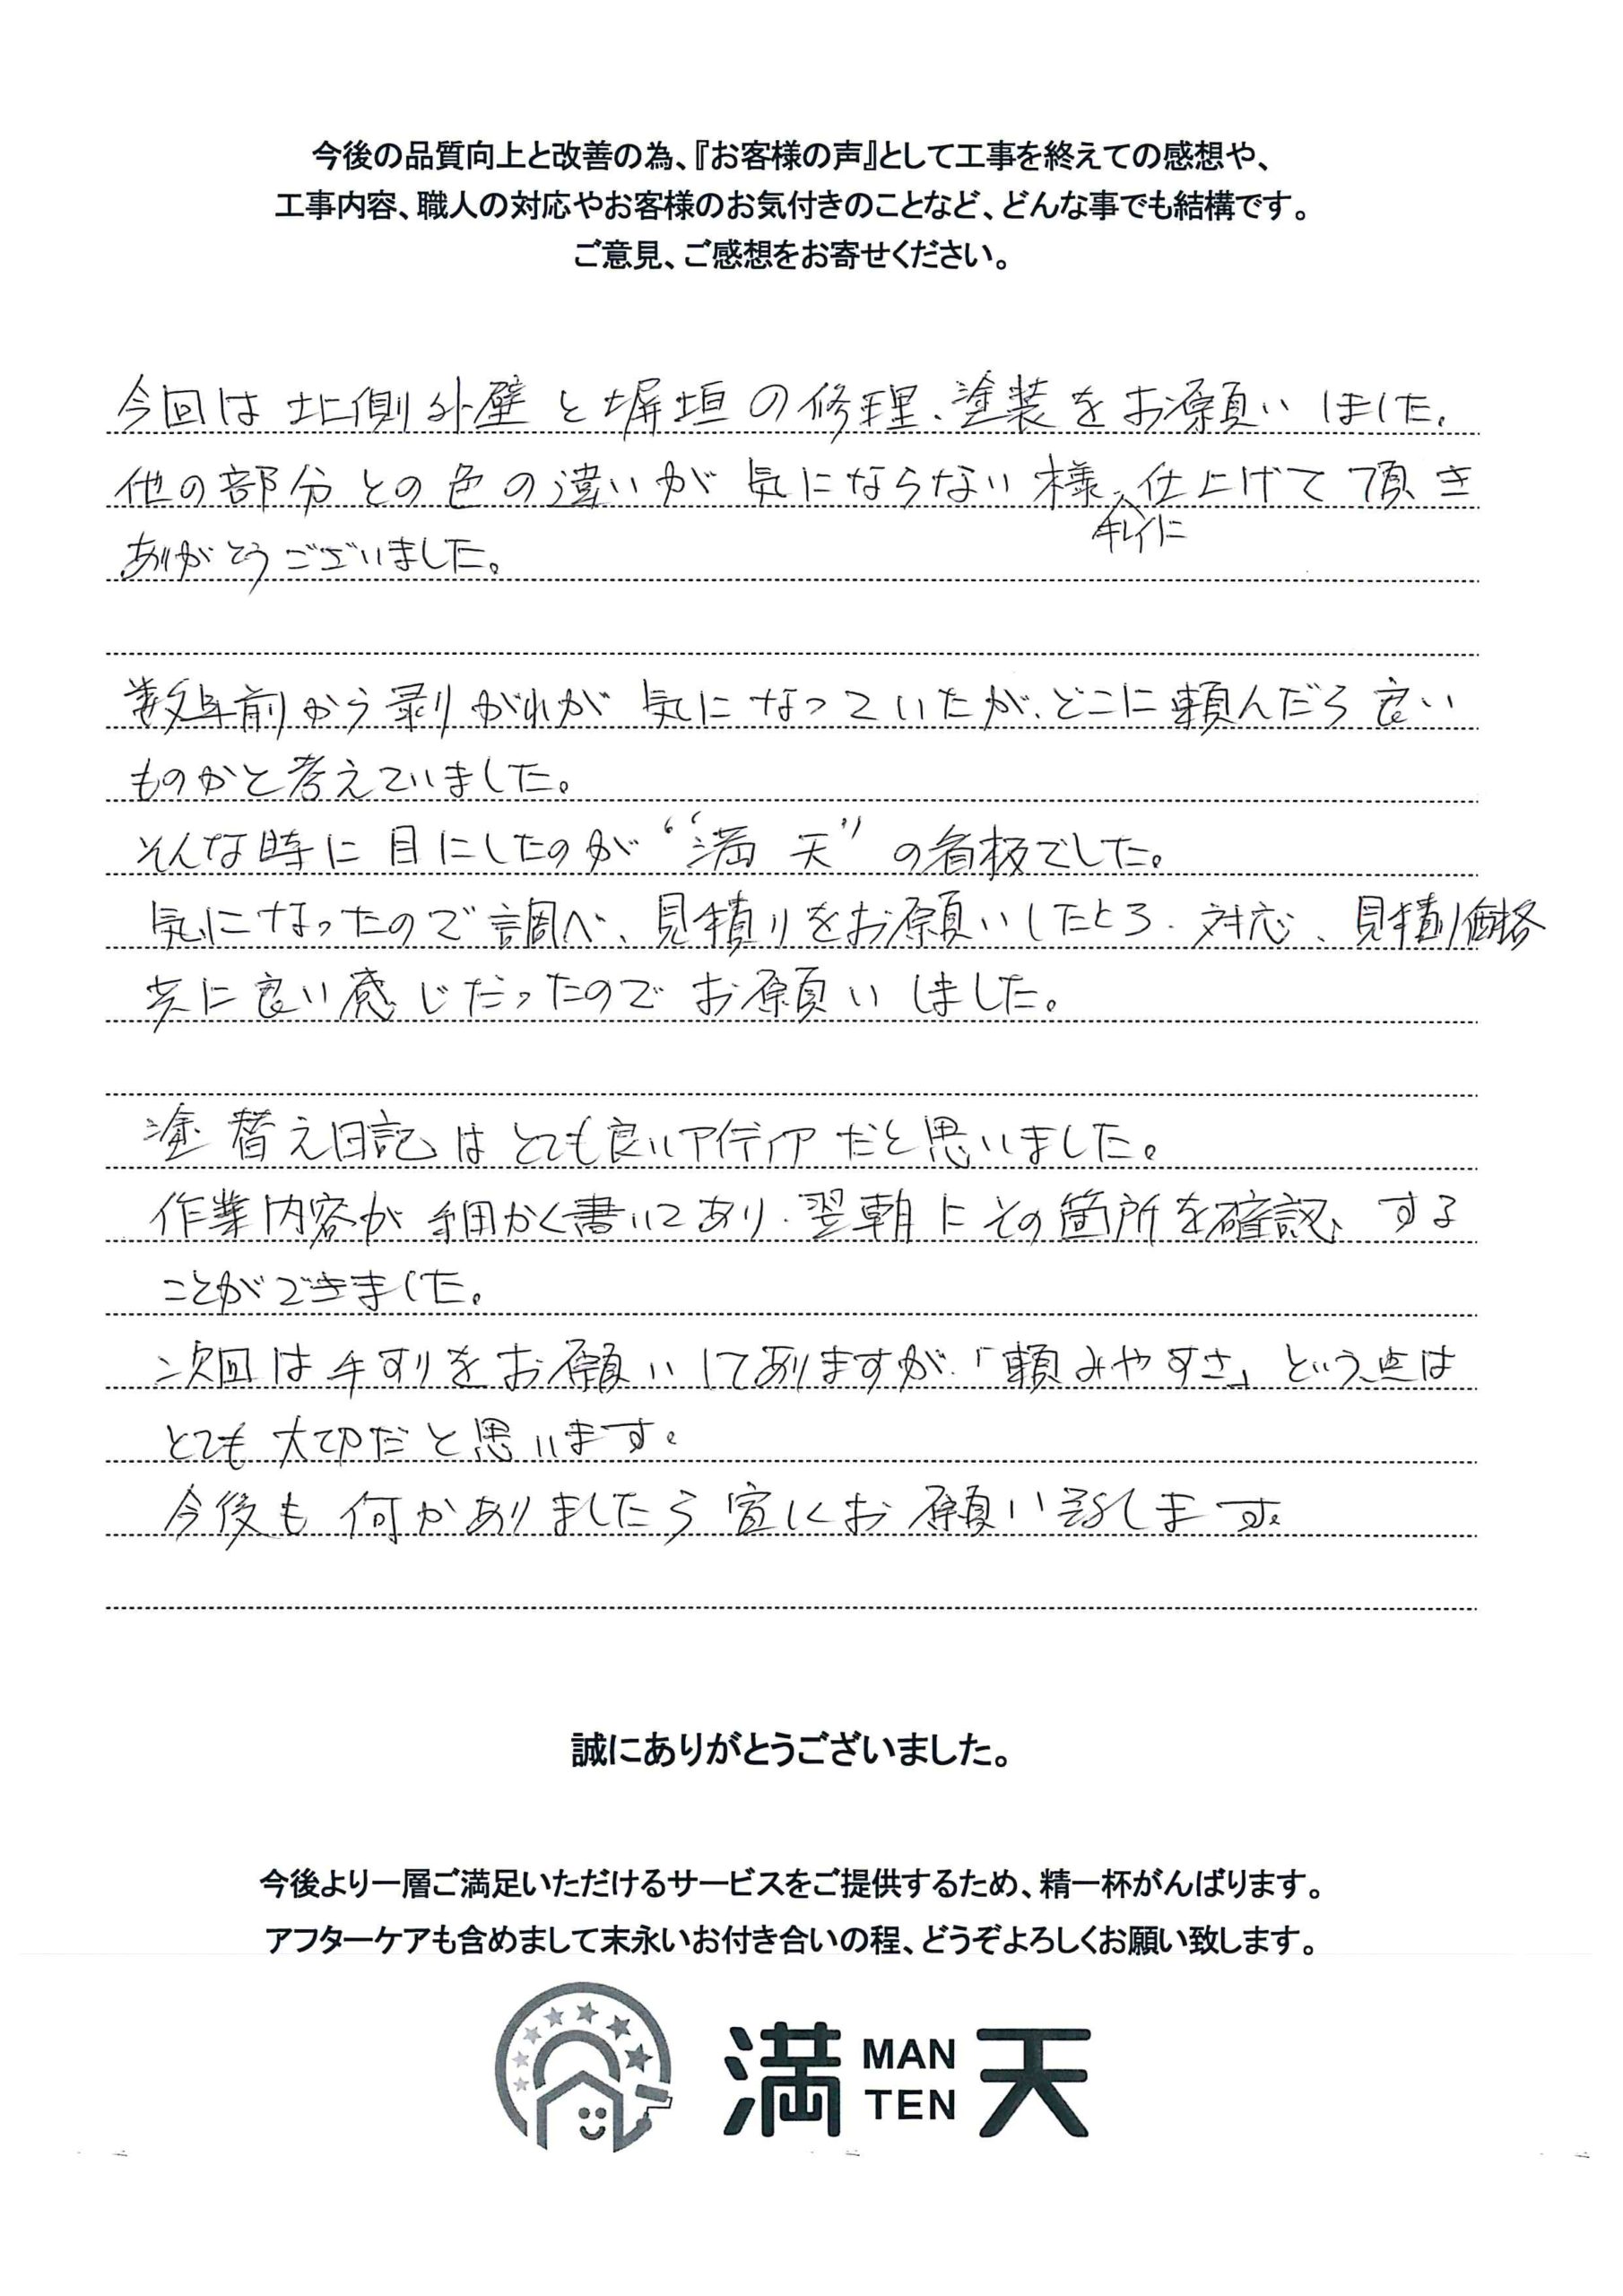 今後の品質向上と改善の為、『お客様の声』として工事を終えての感想や、
工事内容、職人の対応やお客様のお気付きのことなど、どんな事でも結構です。
ご意見、ご感想をお寄せください。
今回は北側外壁と塀垣の修理、塗装をお願いしました。
他の部分との色の違いが気にならない様、キレイに仕上げて頂き
ありがとうございました。
数年前から剥がれが気になっていたが、どこに頼んだら良い
ものかと考えていました。
そんな時に目にしたのが“満天”の看板でした。
気になったので調べ、見積りをお願いしたところ、対応、見積り価格
共に良い感じだったのでお願いしました。
塗替え日記はとても良いアイディアだと思いました。
作業内容が細かく書いてあり、翌朝にその箇所を確認する
ことができました。
次回は手すりをお願いしてありますが、「頼みやすさ」という点は
とても大切だと思います。
今後も何かありましたら宜しくお願い致します。
誠にありがとうございました。
今後より一層ご満足いただけるサービスをご提供するため、精一杯がんばります。
アフターケアも含めまして末永いお付き合いの程、どうぞよろしくお願い致します。
満 MAN TEN 天